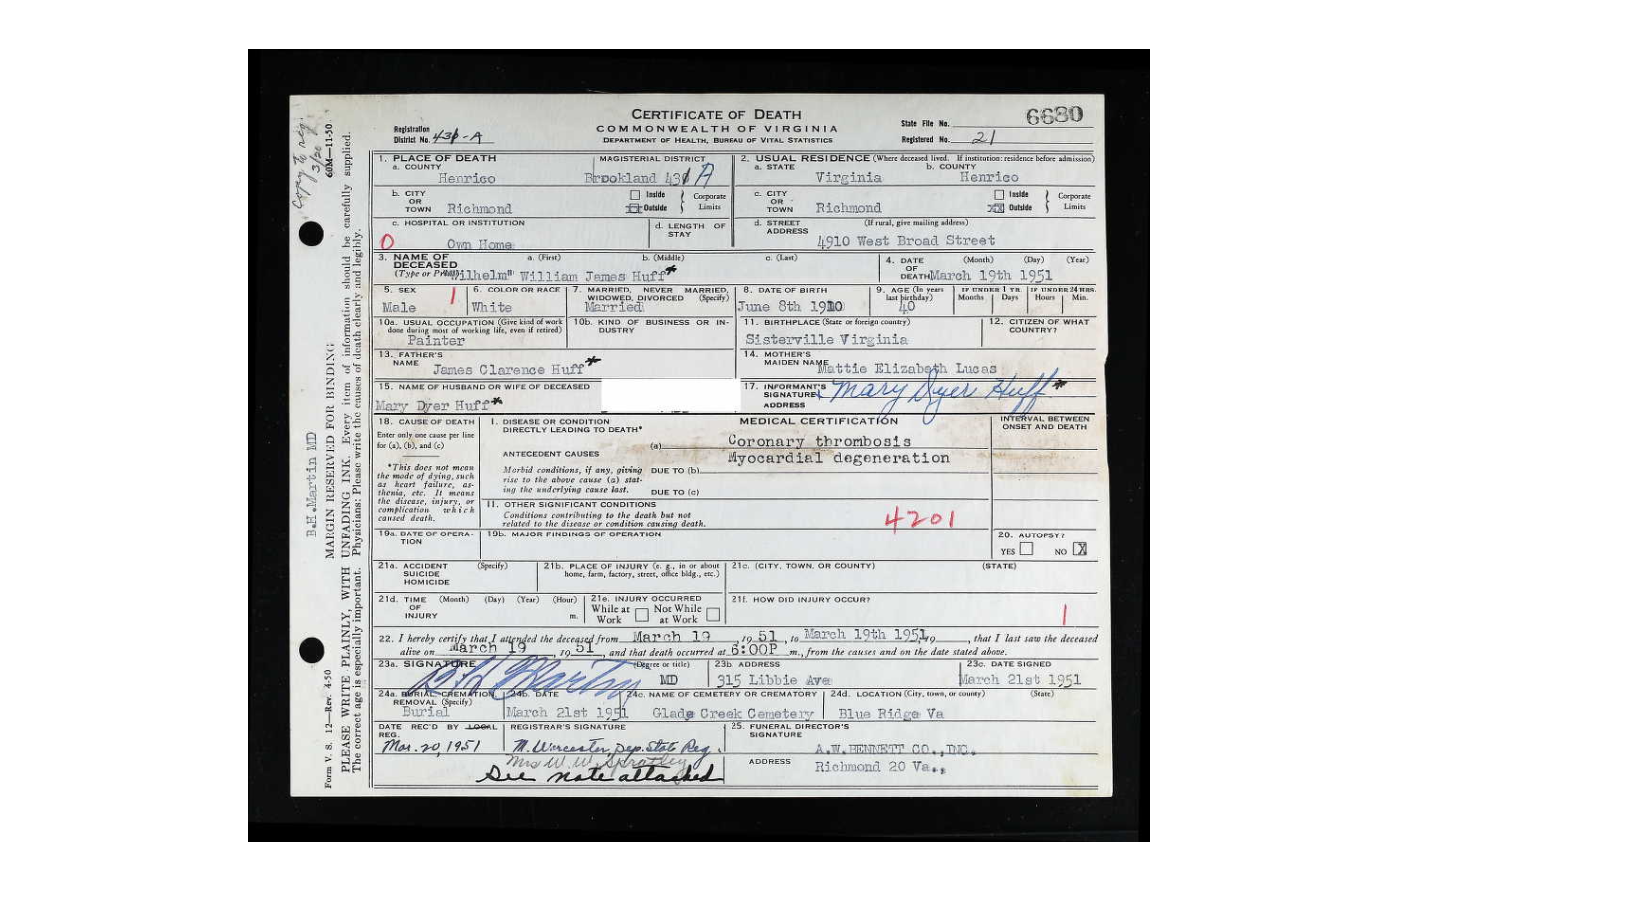 CERTIFICATE OF DEATH
COMMONWEALTH OF VIRGINIA
DEPARTMENT OF HEALTH, BUREAU OF VITAL STATISTICS
Registration District No. 431-A
State File No. 6630
Registered No. 21
copy to reg. 3/20
60M—11-50
1. PLACE OF DEATH
a. COUNTY
Henrico
MAGISTERIAL DISTRICT
Brookland 431 A
2. USUAL RESIDENCE (Where deceased lived. If institution: residence before admission)
a. STATE
Virginia
b. COUNTY
Henrico
b. CITY OR TOWN Richmond
Inside
Outside
Corporate Limits
c. CITY OR TOWN Richmond
Inside
XX Outside
Corporate Limits
c. HOSPITAL OR INSTITUTION
0
Own Home
d. LENGTH OF STAY
d. STREET ADDRESS
(If rural, give mailing address)
4910 West Broad Street
3. NAME OF DECEASED
(Type or Print)
a. (First)
b. (Middle)
c. (Last)
"Wilhelm" William James Huff*
4. DATE OF DEATH
(Month) (Day) (Year)
March 19th 1951
5. SEX
Male
1
6. COLOR OR RACE
White
7. MARRIED, NEVER MARRIED, WIDOWED, DIVORCED (Specify)
Married
8. DATE OF BIRTH
June 8th 1910
9. AGE (In years last birthday)
40
IF UNDER 1 YR.
Months Days
IF UNDER 24 HRS.
Hours Min.
10a. USUAL OCCUPATION (Give kind of work done during most of working life, even if retired)
Painter
10b. KIND OF BUSINESS OR INDUSTRY
11. BIRTHPLACE (State or foreign country)
Sisterville Virginia
12. CITIZEN OF WHAT COUNTRY?
13. FATHER'S NAME
James Clarence Huff*
14. MOTHER'S MAIDEN NAME
Mattie Elizabeth Lucas
15. NAME OF HUSBAND OR WIFE OF DECEASED
Mary Dyer Huff*
17. INFORMANT'S SIGNATURE Mary Dyer Huff*
ADDRESS
18. CAUSE OF DEATH
Enter only one cause per line for (a), (b), and (c)
*This does not mean the mode of dying, such as heart failure, asthenia, etc. It means the disease, injury, or complication which caused death.
I. DISEASE OR CONDITION DIRECTLY LEADING TO DEATH*
MEDICAL CERTIFICATION
INTERVAL BETWEEN ONSET AND DEATH
(a) Coronary thrombosis
ANTECEDENT CAUSES
Myocardial degeneration
Morbid conditions, if any, giving rise to the above cause (a) stating the underlying cause last.
DUE TO (b)
DUE TO (c)
II. OTHER SIGNIFICANT CONDITIONS
Conditions contributing to the death but not related to the disease or condition causing death.
4201
19a. DATE OF OPERATION
19b. MAJOR FINDINGS OF OPERATION
20. AUTOPSY?
YES NO X
21a. ACCIDENT SUICIDE HOMICIDE
(Specify)
21b. PLACE OF INJURY (e. g., in or about home, farm, factory, street, office bldg., etc.)
21c. (CITY, TOWN, OR COUNTY)
(STATE)
21d. TIME OF INJURY
(Month) (Day) (Year) (Hour)
m.
21e. INJURY OCCURRED
While at Work
Not While at Work
21f. HOW DID INJURY OCCUR?
1
22. I hereby certify that I attended the deceased from March 19, 1951, to March 19th 1951, 19 , that I last saw the deceased
alive on March 19, 1951, and that death occurred at 6:00P m., from the causes and on the date stated above.
23a. SIGNATURE
B H Martin
(Degree or title)
MD
23b. ADDRESS
315 Libbie Ave
23c. DATE SIGNED
March 21st 1951
24a. BURIAL, CREMATION, REMOVAL (Specify)
Burial
24b. DATE
March 21st 1951
24c. NAME OF CEMETERY OR CREMATORY
Glade Creek Cemetery
24d. LOCATION (City, town, or county) (State)
Blue Ridge Va
DATE REC'D BY LOCAL REG.
Mar. 20, 1951
REGISTRAR'S SIGNATURE
M. Worcester, Dep. State Reg.
Mrs W. W. Spratley
See note attached
25. FUNERAL DIRECTOR'S SIGNATURE
A.W.BENNETT CO.,INC.
ADDRESS
Richmond 20 Va.,
B.H.Martin MD
Form V. S. 12—Rev. 4-50
MARGIN RESERVED FOR BINDING
PLEASE WRITE PLAINLY, WITH UNFADING INK. Every item of information should be carefully supplied.
The correct age is especially important. Physicians: Please write the causes of death clearly and legibly.